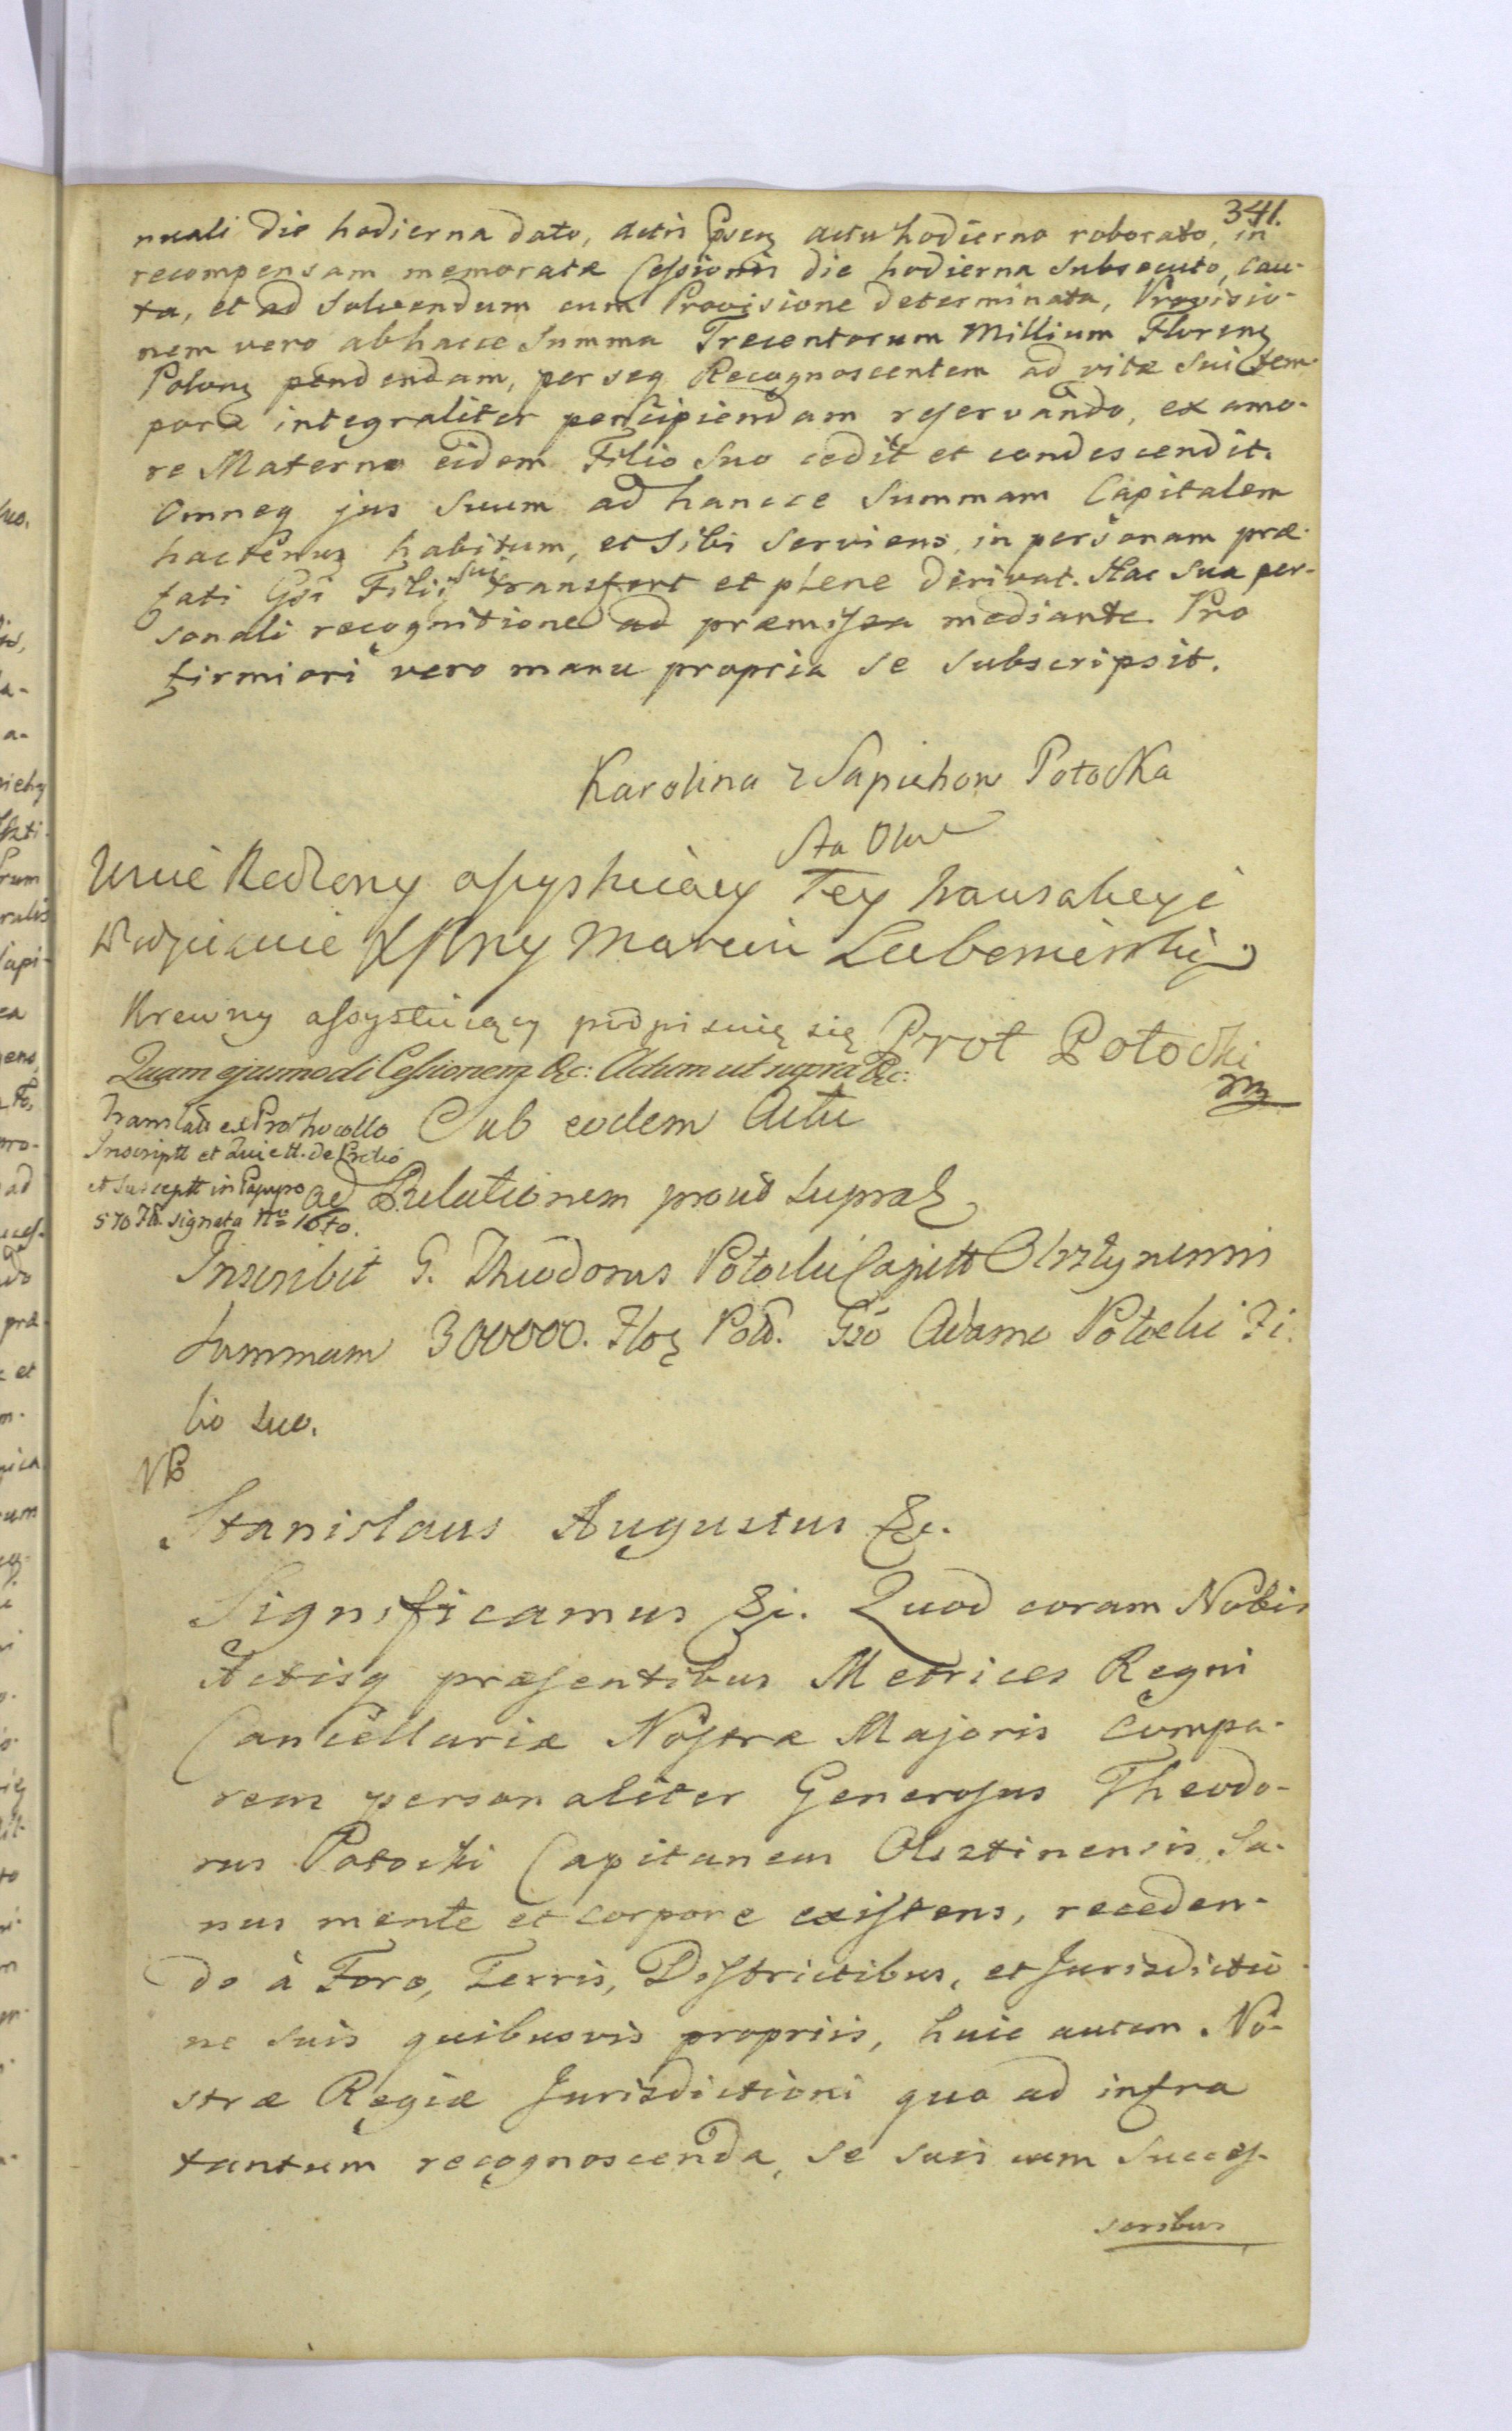 341.
nuali die hodierna dato, actis psenȝ actu hodierno roborato, in
recompensam memoratæ Cessionis die hodierna subsecuto, cau-
ta, et ad solvendum cum Provisione determinata, Provisio-
nem vero ab hacce Summa Trecentorum Millium Florenȝ
Polonȝ pendendam, per seq Recognoscentem ad vitæ sui tem-
pora integraliter percipiendam reservando, ex amo-
re Materno eidem Filio suo cedit et condescendit.
Omneq jus suum ad hancce Summam Capitalem
hactenus habitum, et sibi serviens, in personam præ-
fati Gsi Filii sui transfert et plene derivat. Hac sua per-
sonali recognitione ad præmissa mediante. Pro
firmiori vero manu propria se subscripsit.
Karolina z Sapiehow Potocka
Sta Olsz
assystuiący Tey Transakcyi
Marcin Lubomirski
Krewny assystuiący podpisuię się Prot Potocki
mp
Quam ejusmodi Cessionem &c: Actum ut supra &c:
Translat ex Prothocollo
Inscriptt et Quiett. de
et suscept in Papyro
570 Fl. signata Nro 16to.
Sub eodem Actu
Ad Relationem prout supraȝ
Inscribit G. Theodorus Potocki Capitt Olsztynensis
Summam 300000. Floȝ Pol. Gso Adamo Potocki Fi-
lio suo.
NB
Stanislaus Augustus &c.
Significamus &c. Quod coram Nobis
Actisq præsentibus Metrices Regni
Cancellariæ Nostræ Majoris Compa-
rens personaliter Generosus Theodo-
rus Potocki Capitaneus Olsztinensis, Sa-
nus mente et corpore existens, receden-
do à Foro, Terris, Districtibus, et Jurisdictio-
ne suis quibusvis propriis, huic autem No-
stræ Regiæ Jurisdictioni quo ad infra
tantum recognoscenda, se suis cum succes-
soribus